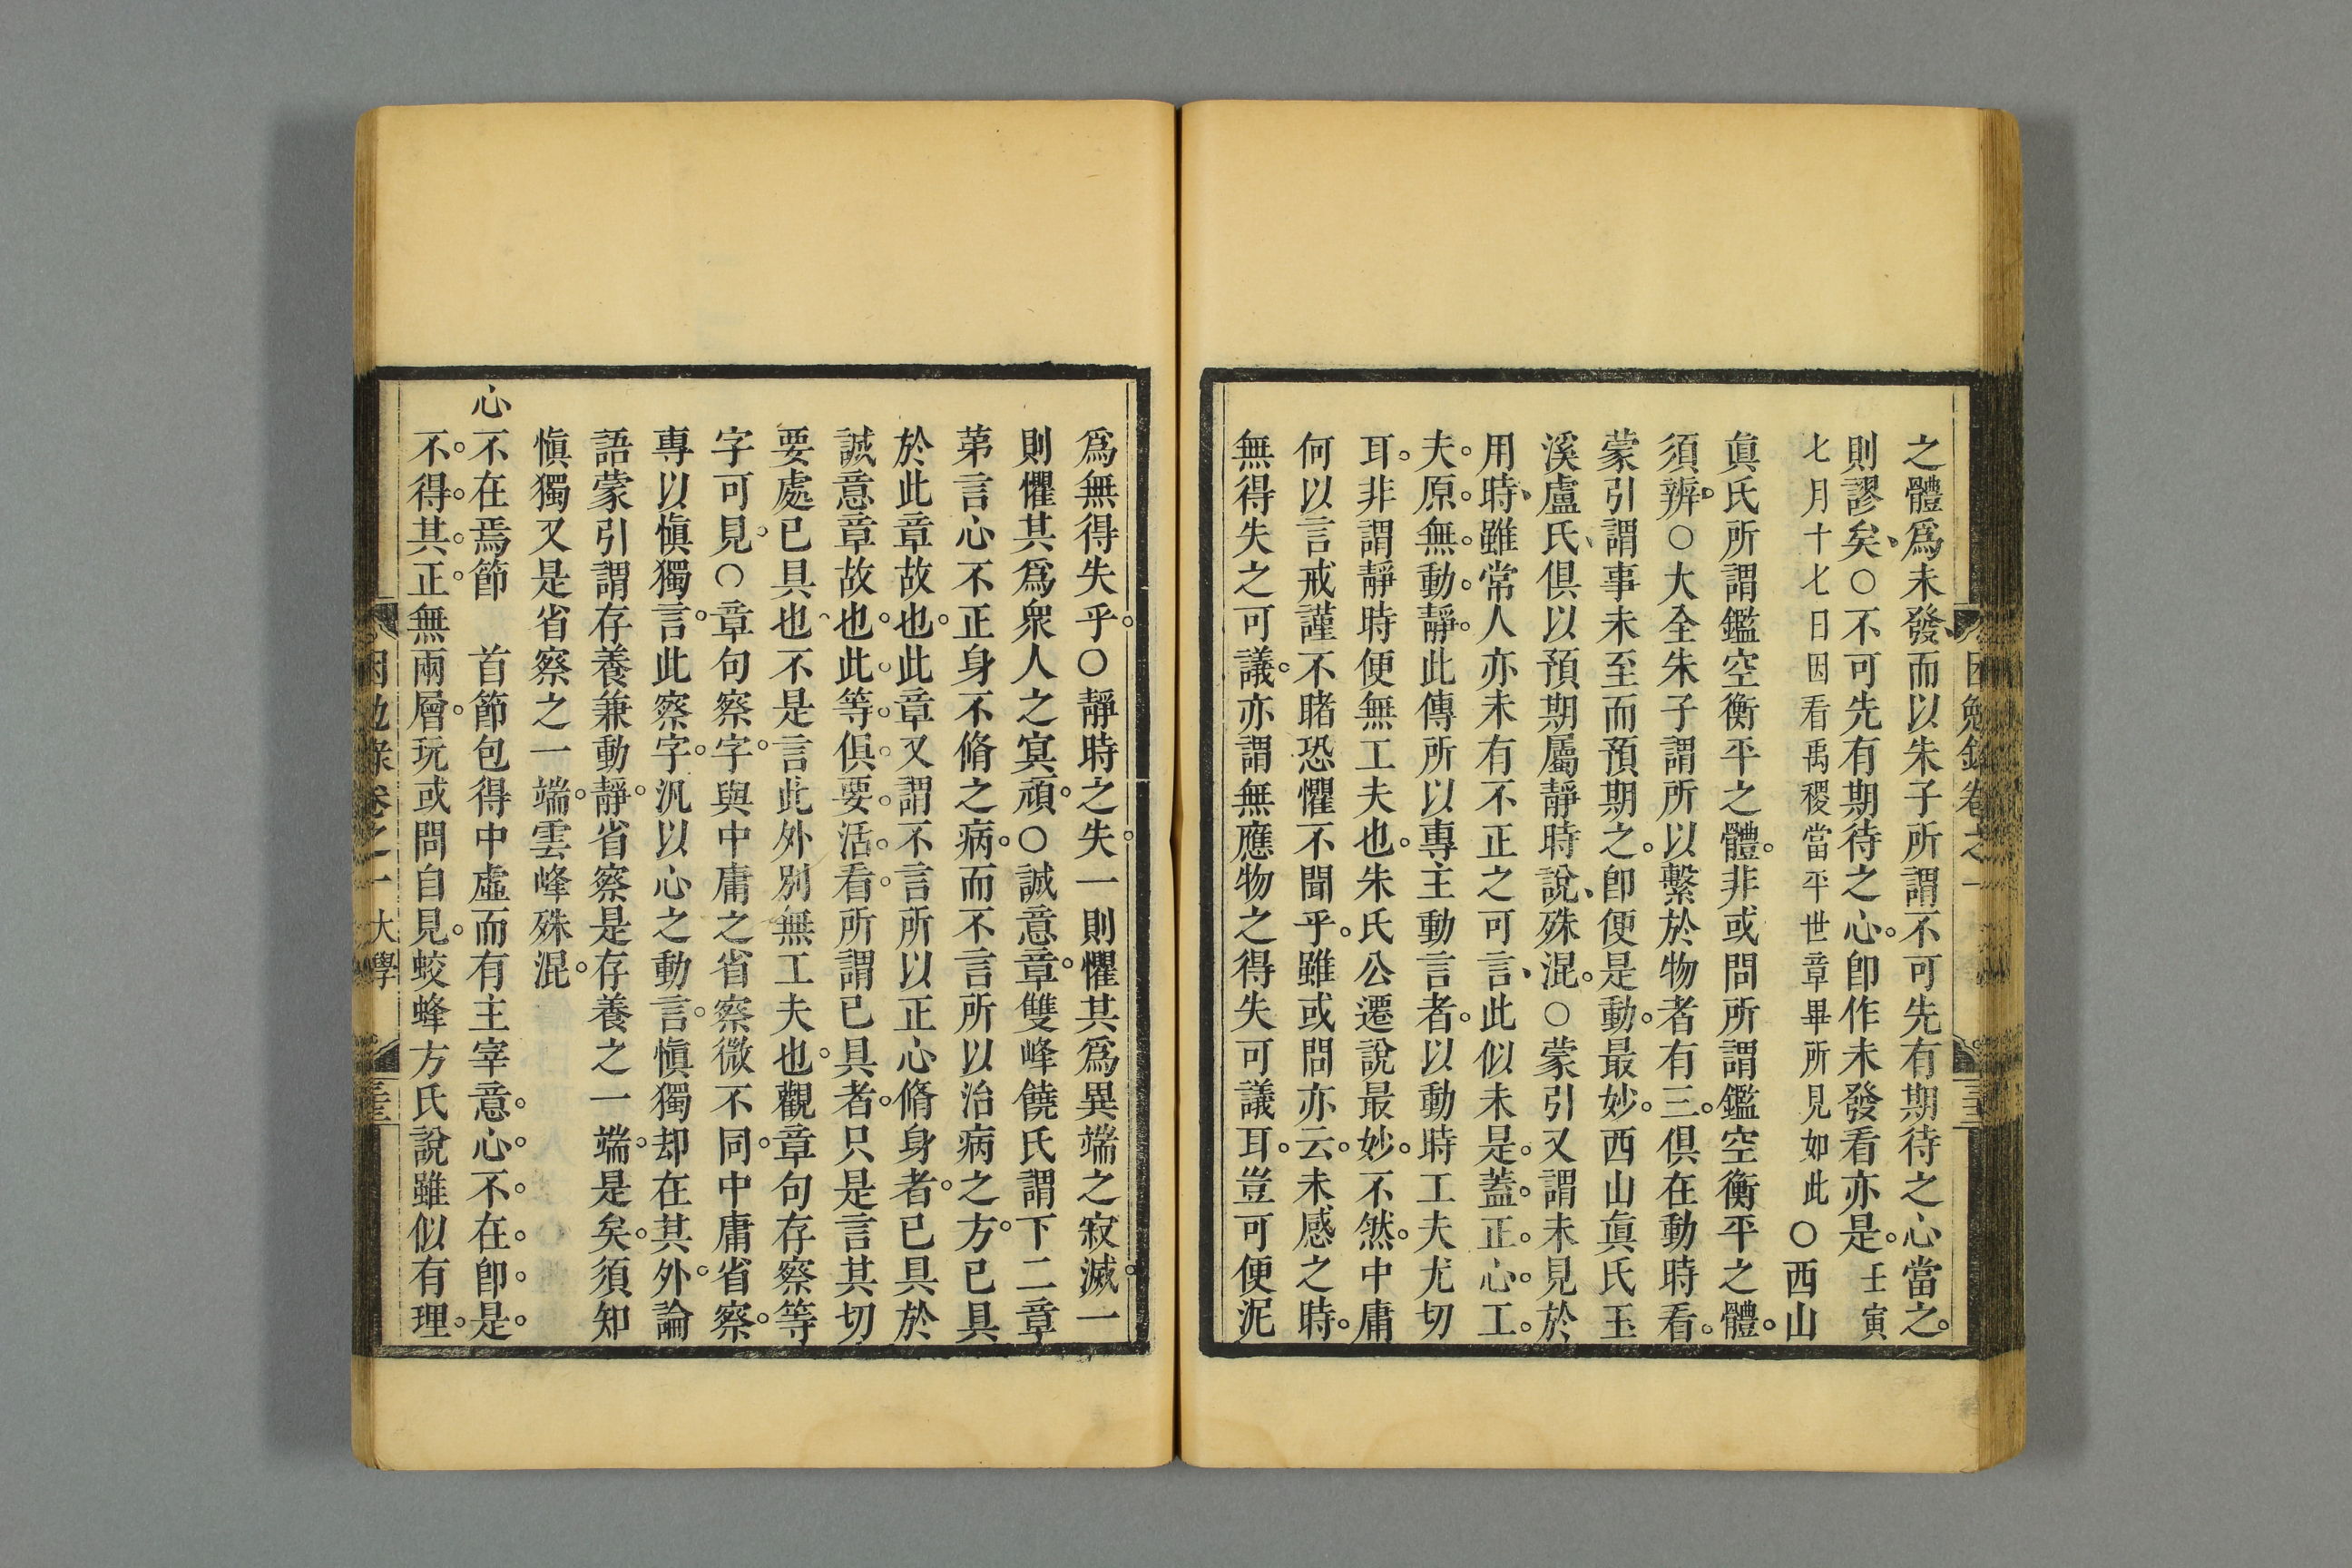 之體爲未發、而以朱子所謂不可先有期待之心當之。
則謬矣、○不可先有期待之心。卽作未發看亦是。壬寅
七月十七日因看禹稷當平世章畢所見如此○西山
眞氏所謂鑑空衡平之體。非或問所謂鑑空衡平之體。
須辨。○大全朱子謂所以繫於物者有三。俱在動時看。
蒙引謂事未至而預期之。卽便是動。最妙。西山眞氏玉
溪盧氏、俱以預期屬靜時說、殊混。○蒙引又謂未見於
用時、雖常人亦未有不正之可言、此似未是。蓋。正。心。工。
夫。原。無。動。靜。此傳所以專主動言者。以動時工夫尤切
耳。非謂靜時便無工夫也。朱氏公遷說最妙。不然。中庸
何以言戒謹不睹恐懼不聞乎。雖或問亦云。未感之時。
無得失之可議。亦謂無應物之得失可議耳。豈可便泥
爲無得失乎。○靜時之失。一則懼其爲異端之寂滅。一
則懼其爲衆人之冥頑。○誠意章。雙峰饒氏謂下二章
苐言心不正身不脩之病。而不言所以治病之方。已具
於此章故也。此章又謂不言所以正心脩身者。已具於
誠意章故也。此。等。俱。要。活。看。所謂已具者。只是言其切
要處已具也、不是言此外別無工夫也。觀章句存察等
字可見。○章句察字。與中庸之省察微不同。中庸省察。
專以愼獨言。此察字。汎以心之動言。愼獨却在其外。論
語蒙引謂存養兼動靜。省察是存養之一端。是矣。須知
愼獨又是省察之一端。雲峰殊混。
心不在焉節　首節包得中虛而有主宰意。心。不。在。卽。是。
不。得。其。正。無兩層。玩或問自見。蛟蜂方氏說雖似有理。
困勉錄卷之一 大學